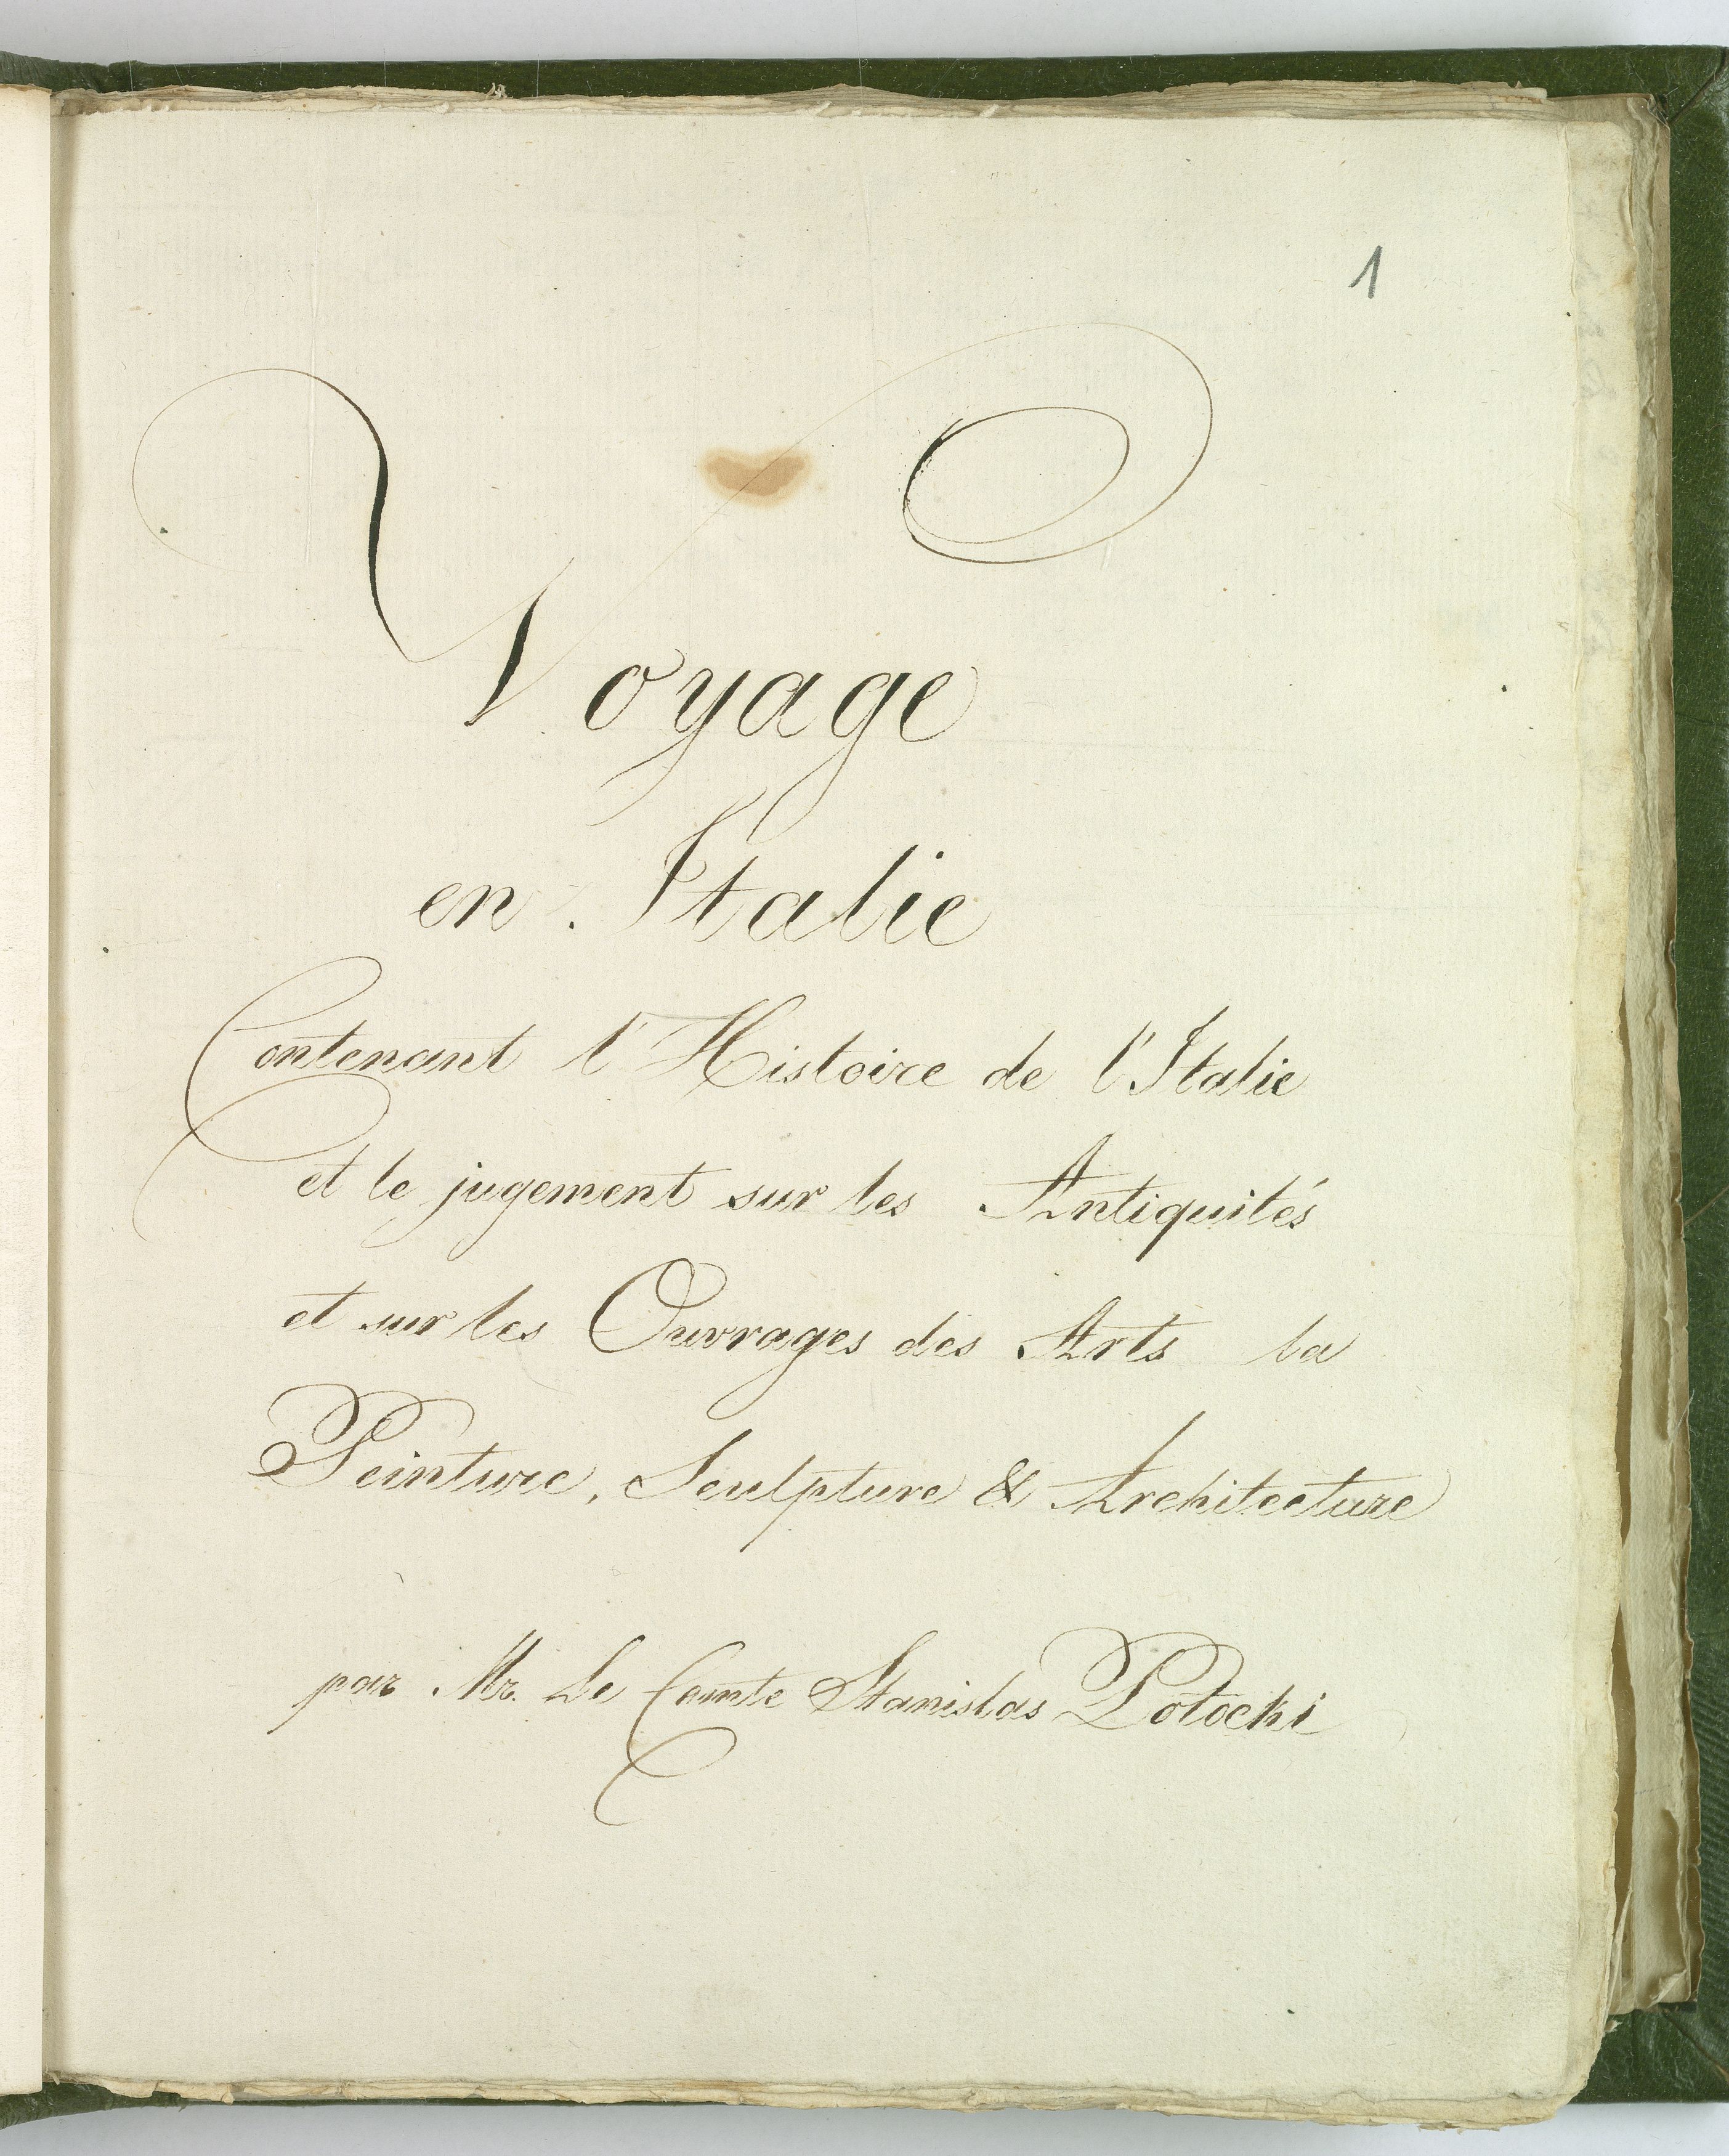 1
Voyage
en. Italie
Contenant l'Histoire de l'Italie
et le jugement sur les Antiquités
et sur les Ouvrages des Arts la
Peinture, Sculpture & Architecture
par Mr. Le Comte Stanislas Potocki